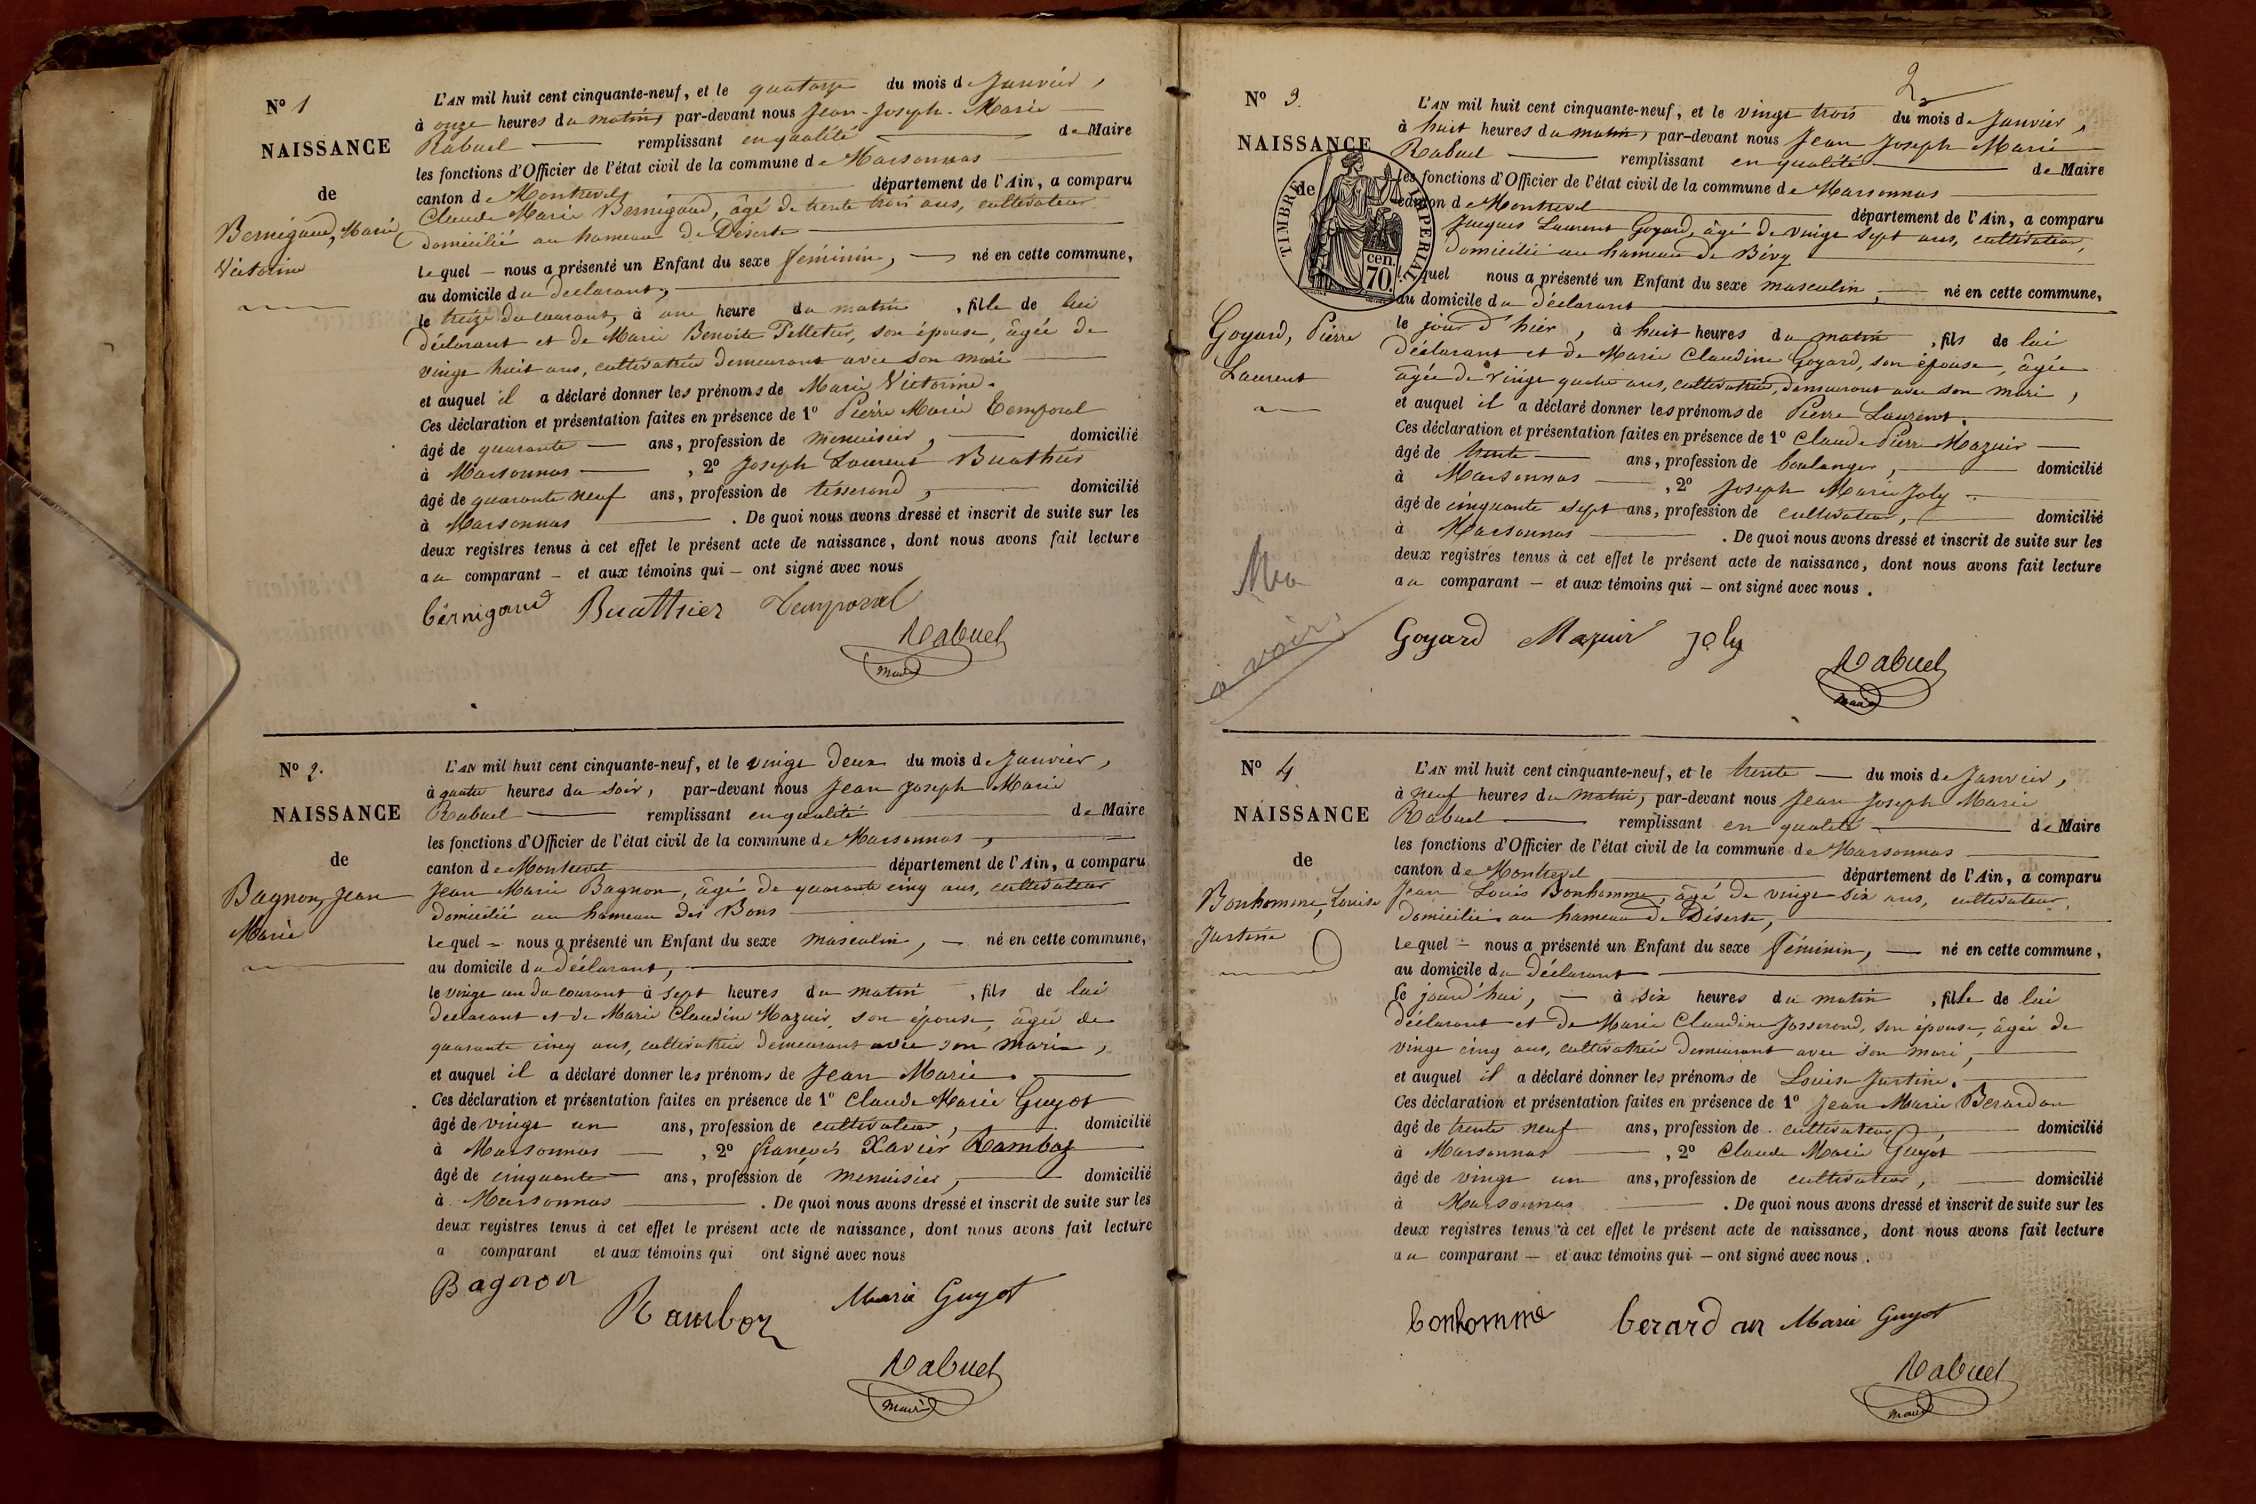 N° 1
NAISSANCE
de
Bernigaud, Marie
Victorine
L'AN mil huit cent cinquante-neuf, et le quatorze du mois de Janvier,
à onze heures du matin, par-devant nous Jean-Joseph-Marie
Rabuel remplissant en qualité de Maire
les fonctions d'Officier de l'état civil de la commune de Marsonnas
canton de Montrevel département de l'Ain, a comparu
Claude Marie Bernigaud, âgé de trente trois ans, cultivateur
domicilié au hameau de Déserte
lequel nous a présenté un Enfant du sexe féminin, né en cette commune,
au domicile du déclarant,
le treize du courant, à une heure du matin, fille de lui
déclarant et de Marie Benoite Pelletier, son épouse, âgée de
vingt huit ans, cultivatrice demeurant avec son mari
et auquel il a déclaré donner les prénoms de Marie Victorine.
Ces déclaration et présentation faites en présence de 1° Pierre Marie Temporal
âgé de quarante ans, profession de menuisier, domicilié
à Marsonnas, 2° Joseph Laurent Buathier
âgé de quarante neuf ans, profession de tisserand, domicilié
à Marsonnas. De quoi nous avons dressé et inscrit de suite sur les
deux registres tenus à cet effet le présent acte de naissance, dont nous avons fait lecture
au comparant et aux témoins qui ont signé avec nous
bérnigaud Buathier Temporal
Rabuel
maire
N° 2.
NAISSANCE
de
Bagnon, Jean
Marie
L'AN mil huit cent cinquante-neuf, et le vingt deux du mois de Janvier,
à quatre heures du soir, par-devant nous Jean Joseph Marie
Rabuel remplissant en qualité de Maire
les fonctions d'Officier de l'état civil de la commune de Marsonnas,
canton de Montrevel département de l'Ain, a comparu
Jean Marie Bagnon, âgé de quarante cinq ans, cultivateur
domicilié au hameau des Bons
lequel nous a présenté un Enfant du sexe masculin, né en cette commune,
au domicile du déclarant,
le vingt un du courant à sept heures du matin, fils de lui
déclarant et de Marie Claudine Mazuir, son épouse, âgée de
quarante cinq ans, cultivatrice demeurant avec son mari,
et auquel il a déclaré donner les prénoms de Jean Marie.
Ces déclaration et présentation faites en présence de 1° Claude Marie Guyot
âgé de vingt un ans, profession de cultivateur, domicilié
à Marsonnas, 2° françois Xavier Ramboz
âgé de cinquante ans, profession de menuisier, domicilié
à Marsonnas. De quoi nous avons dressé et inscrit de suite sur les
deux registres tenus à cet effet le présent acte de naissance, dont nous avons fait lecture
a comparant et aux témoins qui ont signé avec nous
Bagnon Ramboz Marie Guyot
Rabuel
maire
2
N° 3.
NAISSANCE
de
TIMBRE IMPERIAL
70 cen.
Goyard, Pierre
Laurent
à voir
L'AN mil huit cent cinquante-neuf, et le vingt trois du mois de Janvier,
à huit heures du matin, par-devant nous Jean Joseph Marie
Rabuel remplissant en qualité de Maire
les fonctions d'Officier de l'état civil de la commune de Marsonnas
canton de Montrevel département de l'Ain, a comparu
Jacques Laurent Goyard, âgé de vingt sept ans, cultivateur,
domicilié au hameau de Bévy
lequel nous a présenté un Enfant du sexe masculin, né en cette commune,
au domicile du déclarant
le jour d'hier, à huit heures du matin, fils de lui
déclarant et de Marie Claudine Goyard, son épouse, âgée
âgée de vingt quatre ans, cultivatrice, demeurant avec son mari,
et auquel il a déclaré donner les prénoms de Pierre Laurent.
Ces déclaration et présentation faites en présence de 1° Claude Pierre Mazuir
âgé de trente ans, profession de boulanger, domicilié
à Marsonnas, 2° Joseph Marie Joly
âgé de cinquante sept ans, profession de cultivateur, domicilié
à Marsonnas. De quoi nous avons dressé et inscrit de suite sur les
deux registres tenus à cet effet le présent acte de naissance, dont nous avons fait lecture
au comparant et aux témoins qui ont signé avec nous.
Goyard Mazuir Joly
Rabuel
maire
N° 4
NAISSANCE
de
Bonhomme, Louise
Justine
L'AN mil huit cent cinquante-neuf, et le trente du mois de Janvier,
à neuf heures du matin, par-devant nous Jean Joseph Marie
Rabuel remplissant en qualité de Maire
les fonctions d'Officier de l'état civil de la commune de Marsonnas
canton de Montrevel département de l'Ain, a comparu
Jean Louis Bonhomme, âgé de vingt six ans, cultivateur,
domicilié au hameau de Déserte,
lequel nous a présenté un Enfant du sexe féminin, né en cette commune,
au domicile du déclarant
ce jourd'hui, à six heures du matin, fille de lui
déclarant et de Marie Claudine Josserand, son épouse, âgée de
vingt cinq ans, cultivatrice demeurant avec son mari,
et auquel il a déclaré donner les prénoms de Louise Justine.
Ces déclaration et présentation faites en présence de 1° Jean Marie Berardan
âgé de trente neuf ans, profession de cultivateur, domicilié
à Marsonnas, 2° Claude Marie Guyot
âgé de vingt un ans, profession de cultivateur, domicilié
à Marsonnas. De quoi nous avons dressé et inscrit de suite sur les
deux registres tenus à cet effet le présent acte de naissance, dont nous avons fait lecture
au comparant et aux témoins qui ont signé avec nous.
bonhomme berardan Marie Guyot
Rabuel
maire